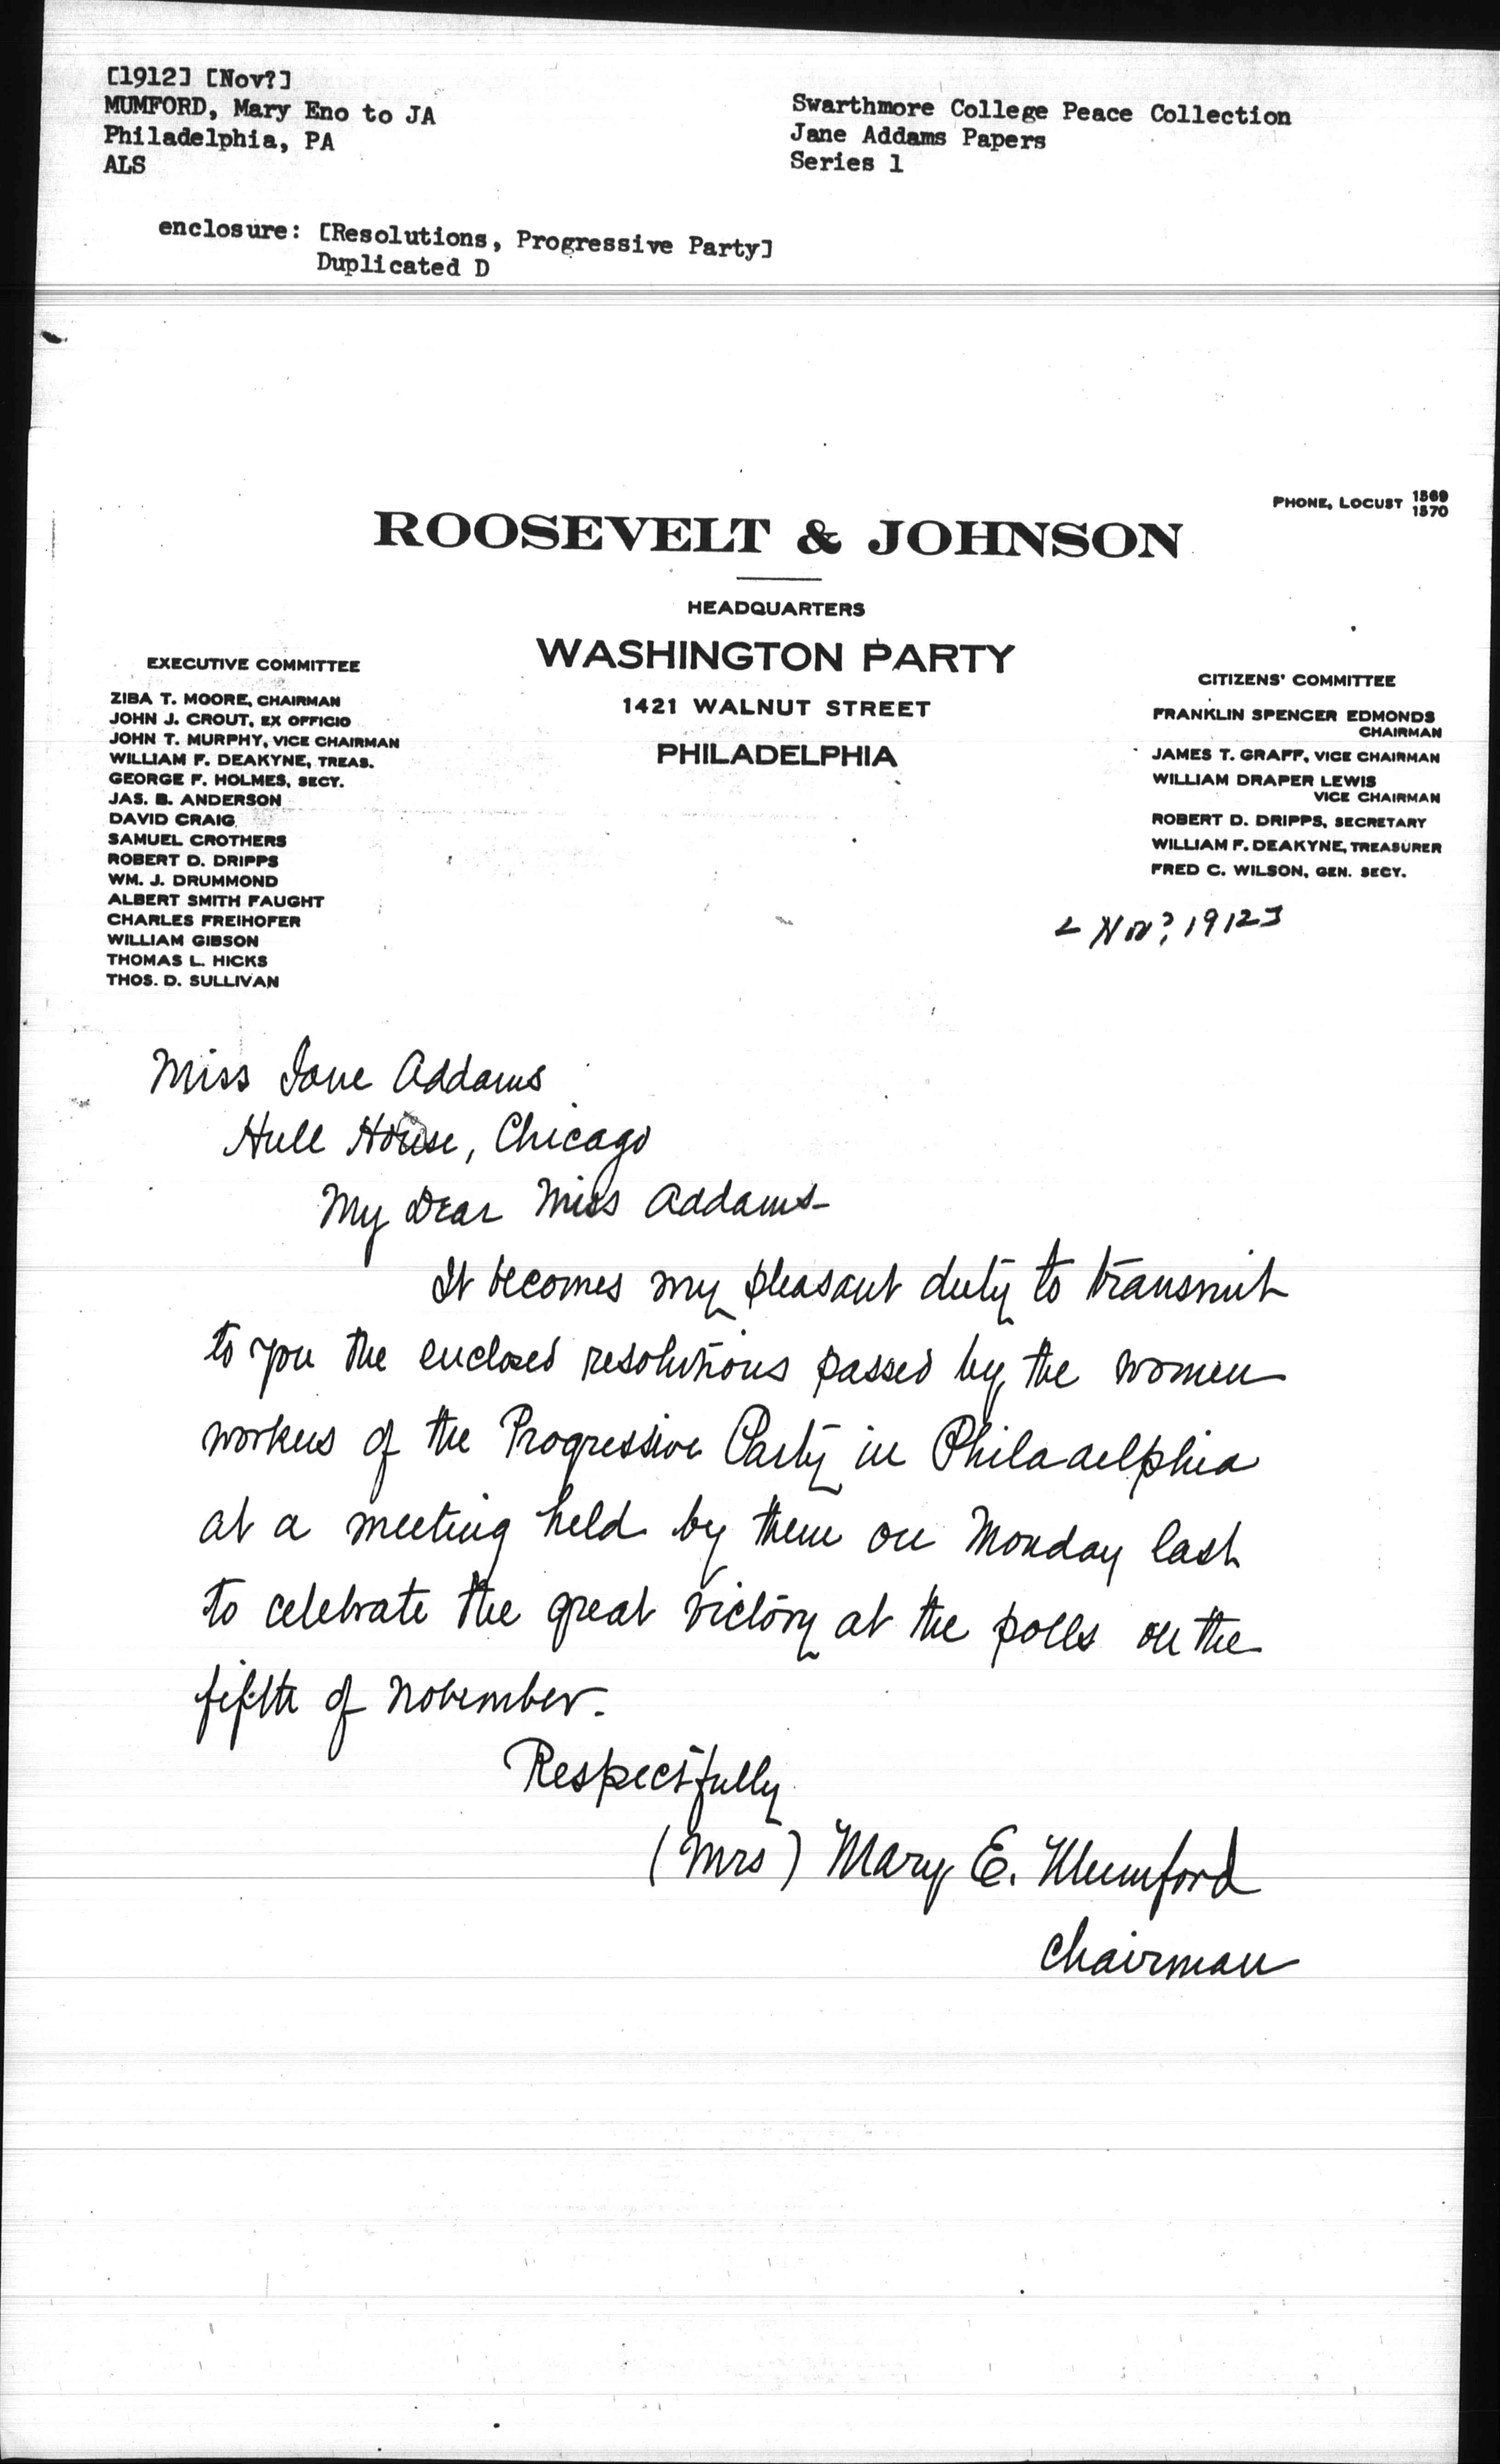 [1912] [Nov?]
MUMFORD, Mary Eno to JA
Philadelphia, PA
ALS
Swarthmore College Peace Collection
Jane Addams Papers
Series 1
enclosure: [Resolutions, Progressive Party]
Duplicated D
PHONE, LOCUST 1569
1570
ROOSEVELT & JOHNSON
HEADQUARTERS
WASHINGTON PARTY
1421 WALNUT STREET
PHILADELPHIA
EXECUTIVE COMMITTEE
ZIBA T. MOORE, CHAIRMAN
JOHN J. CROUT, EX OFFICIO
JOHN T. MURPHY, VICE CHAIRMAN
WILLIAM F. DEAKYNE, TREAS.
GEORGE F. HOLMES, SECY.
JAS. B. ANDERSON
DAVID CRAIG
SAMUEL CROTHERS
ROBERT D. DRIPPS
WM. J. DRUMMOND
ALBERT SMITH FAUGHT
CHARLES FREIHOFER
WILLIAM GIBSON
THOMAS L. HICKS
THOS. D. SULLIVAN
CITIZENS' COMMITTEE
FRANKLIN SPENCER EDMONDS
CHAIRMAN
JAMES T. GRAFF, VICE CHAIRMAN
WILLIAM DRAPER LEWIS
VICE CHAIRMAN
ROBERT D. DRIPPS, SECRETARY
WILLIAM F. DEAKYNE, TREASURER
FRED C. WILSON, GEN. SECY.
[Nov? 1912]
Miss Jane Addams
Hull House, Chicago
My Dear Miss Addams-
It becomes my pleasant duty to transmit
to you the enclosed resolutions passed by the women
workers of the Progressive Party in Philadelphia
at a meeting held by them on Monday last
to celebrate the great victory at the polls on the
fifth of November.
Respectfully
(Mrs) Mary E. Mumford
Chairman